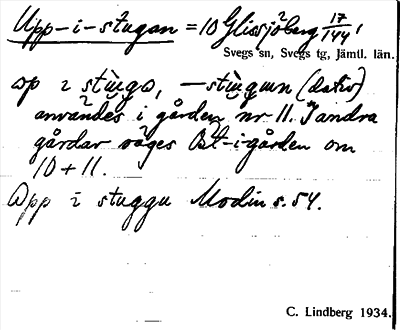 Upp-i-stugan = 10 Glissjöberg 17/144,
Svegs sn, Svegs tg, Jämtl. län.
ɷp ɩ stùgɷ, -stùgun (dativ)
användes i gården nr 11. I andra
gårdar säges Öst-i-gården om
10 + 11.
Upp i stuggu Modin s. 54.
C. Lindberg 1934.